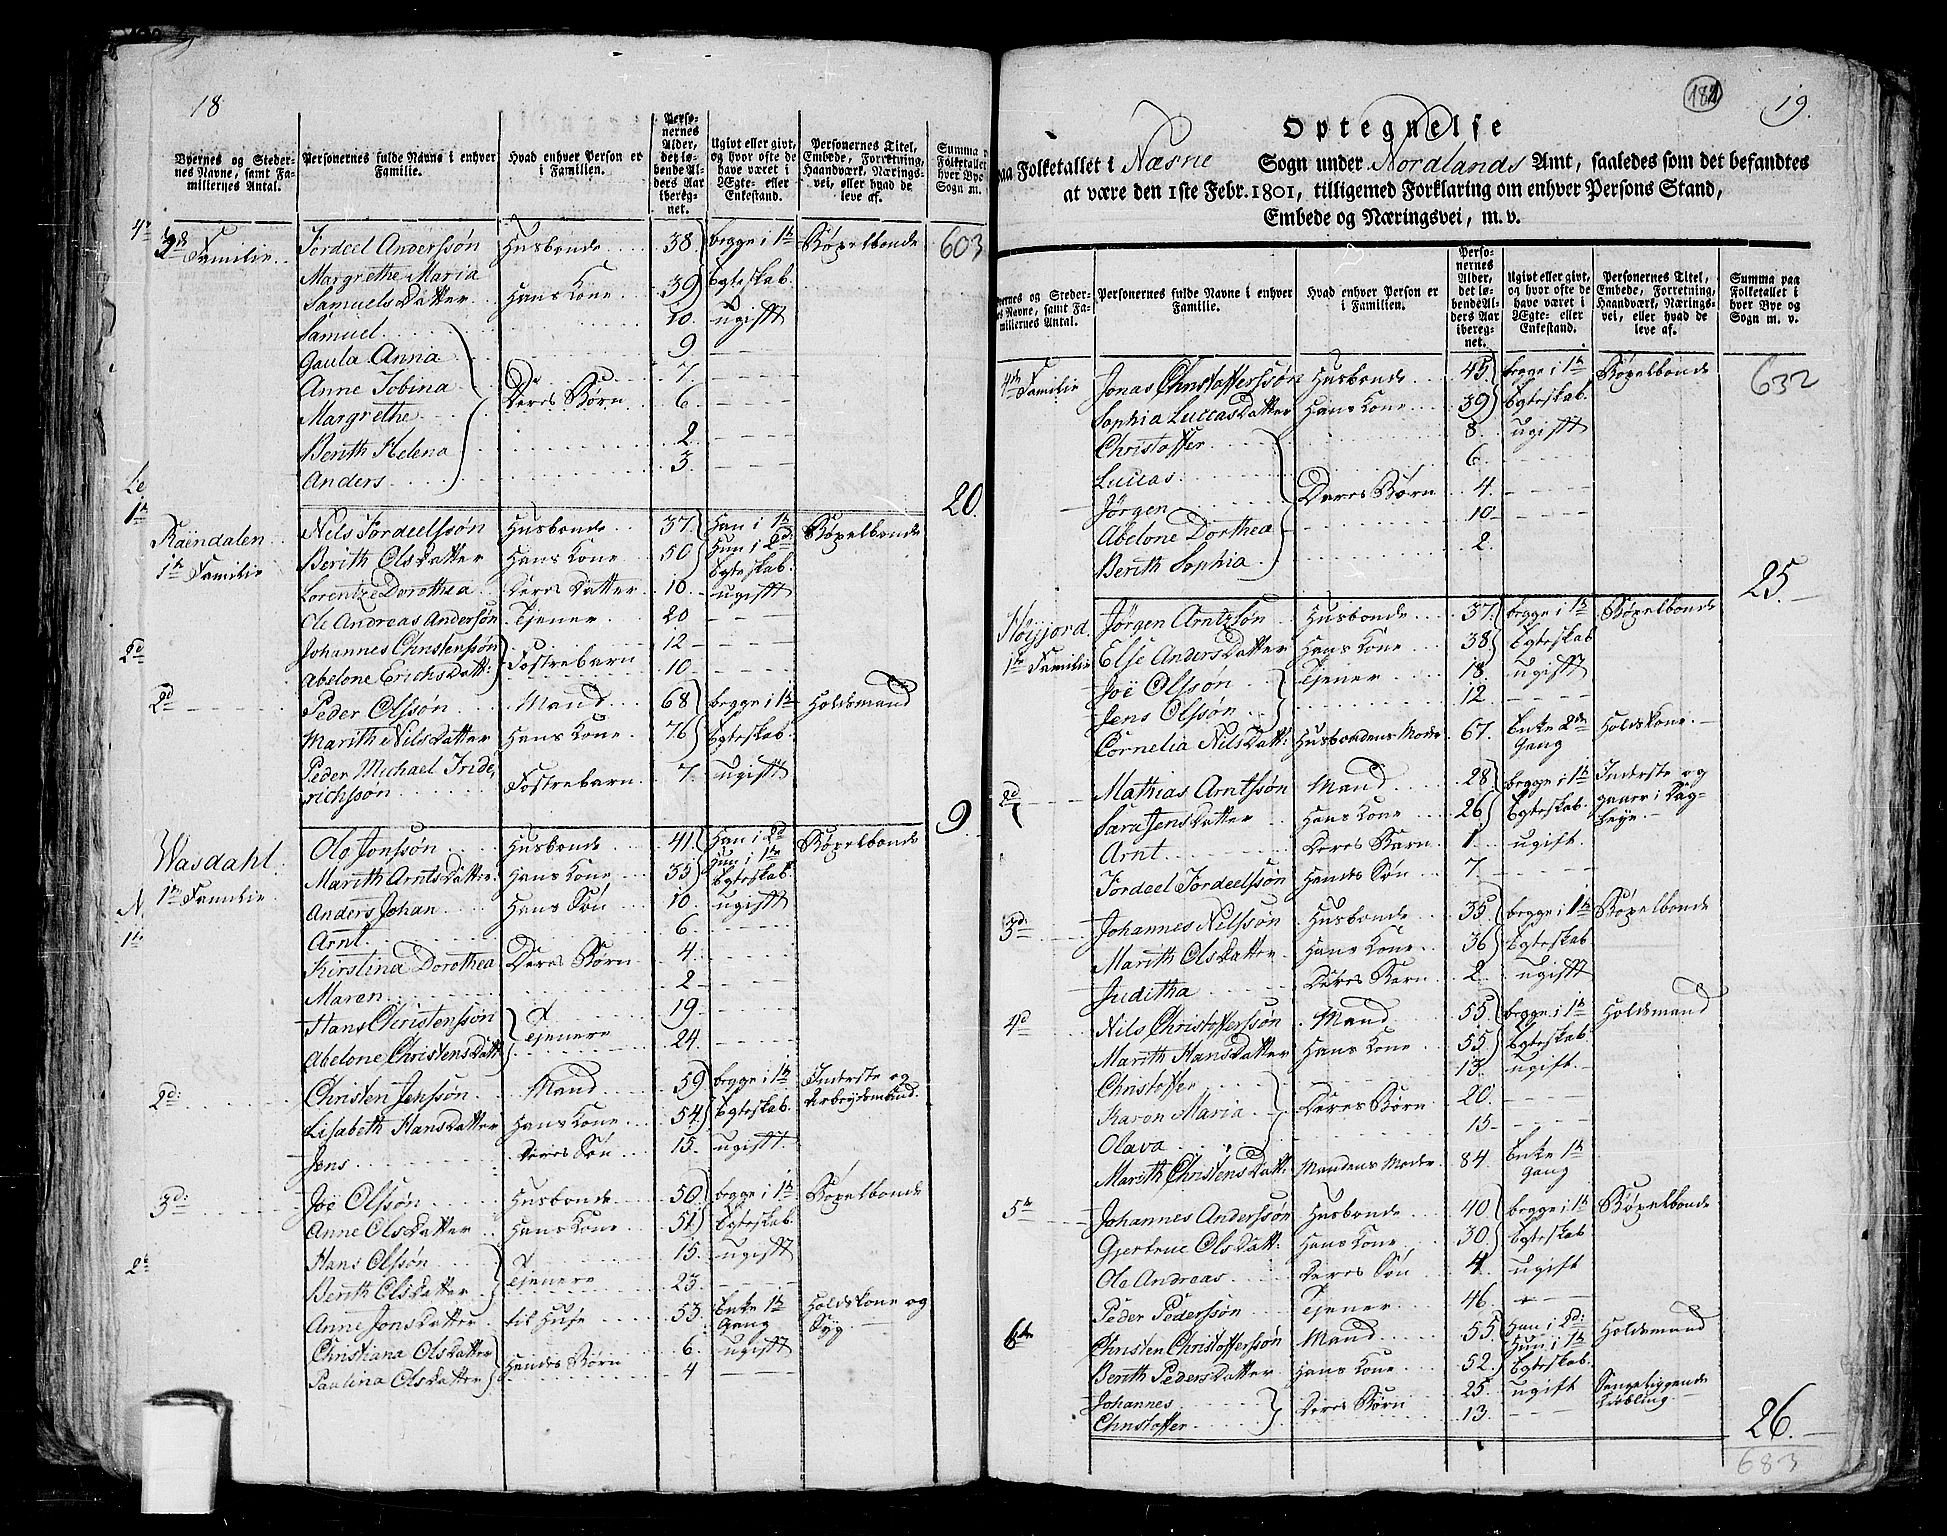 18
Byernes og Steder-
nes Navne, samt Fa-
miliernes Antal.
Personernes fulde Navne i enhver
Familie.
Hvad enhver Person er
i Familien.
Perso-
nernes
Alder,
det lø-
bende Al-
ders Aar
iberegt-
net.
Ugivt eller givt,
og hvor ofte de
have været i
Ægte- eller
Enkestand.
Personernes Titel,
Embede, Forretning,
Haandværk, Nærings-
vei, eller hvad de
leve af.
Summa
Folketallet
hver Bye
Sogn m.
Familie Tordeel Anderssøn Husbonde 38 begge i 1te Bøxelbonde 603
Margrethe Maria
Samuelsdatter Hans Kone 39 Egteskab
Samuel 20 ugift
Gaula Anna 9
Anne Tobina 7
Margrethe Deres Børn 6
Berith Helena 2
Anders 3
20
Raendalen Nils Tordeelssøn Husbonde 37 Han i 1te Bøxelbonde
Berith Olsdatter Hans Kone 50 Hun i 2d
1te Familie Egteskab
Lorentze Dorothea Deres Datter 10 ugift
Ole Andreas Andersøn Tjener 20
Johannes Christenssøn 12
Abelone Erichsdatt: Fostrebørn 10
2d Peder Olssøn Mand 68 begge i 1te Holdsmand
Marith Nilsdatter Hans Kone 76 Egteskab
Peder Michael Fride,
richssøn Fostrebarn 7 ugift
9
Wasdahl Ole Jonssøn Husbonde 41 Han i 2d Bøxelbonde
Hun i 1te
1te Familie Marith Arntsdatter Hans Kone 35 Egteskab
Anders Johan Hans Søn 10 ugift
Arnt 6
Kirstina Dorothea Deres Børn 4
Maren 2
Hans Christenssøn 19
Abelone Christensdatt: Tjenere 24
2d: Christen Jenssøn Mand 59 begge i 1te Inderste og
Lisabeth Hansdatter Hans Kone 54 Egteskab Arbejdsmand.
Jens Deres Søn 15 ugift
3d: Joe Olssøn Husbonde 50 begge i 1te Bøxelbonde
Anne Olsdatter Hans Kone 51 Egteskab
Hans Olssøn 15 ugift
Berith Olsdatter Tjenere 23
Anne Jonsdatter til Huse 53 Enke 1te Holdskone og
Gang Syg
Christiana Olsdatter 6 ugift
Paulina Olsdatter Hendes Børn 4
181 19.
Optegnelse
paa Folketallet i Næsne Sogn under Nordlands Amt, saaledes som det befandtes
at være den 1ste Febr. 1801, tilligemed Forklaring om enhver Persons Stand,
Embede og Næringsvei, m. v.
Byernes og Steder-
nes Navne, samt Fa-
miliernes Antal.
Personernes fulde Navne i enhver
Familie.
Hvad enhver Person er
i Familien.
Perso-
nernes
Alder,
det lø-
bende Al-
ders Aar
ibereg-
net.
Ugivt eller givt,
og hvor ofte de
have været i
Ægte- eller
Enkestand.
Personernes Titel,
Embede, Forretning,
Haandværk, Nærings-
vei, eller hvad de
leve af.
Summa paa
Folketallet i
hver Bye og
Sogn m. v.
4de Familie Jonas Christofferssøn Husbonde 45 begge i 1te Bøxelbonde 632
Sophia Luccasdatter Hans Kone 39 Egteskab
Christoffer 8 ugift
Luccas 6
Jørgen Deres Børn 4
Abelone Dorthea 10
Berith Sophia 2
25
Høyjord Jørgen Arntzsøn Husbonde 37 begge i 1te Bøxelbonde
1te Familie Else Andersdatter Hans Kone 38 Egteskab
Joe Olssøn Tjener 18 ugift
Jens Olssøn 12
Cornelia Nilsdatt: Husbondens Moder 67. Enke 2den Holdskone
Gang
2d Mathias Arntssøn Mand 28 begge i 1te Inderste og
Sara Jensdatter Hans Kone 26 Egteskab gaaer i Dag-
Arnt Deres Barn 1 ugift. leye.
Tordeel Tordeelssøn Hendes Søn 7
3d Johannes Nilssøn Husbonde 35 begge i 1te Bøxelbonde
Marith Olsdatter Hans Kone 36 Egteskab
Juditha Deres Barn 2 ugift
4d Nils Christofferssøn Mand 55 begge i 1te Holdsmand
Marith Hansdatter Hans Kone 55 Egteskab
Christoffer 13 ugift.
Karen Maria Deres Børn 20
Olava 15
Marith Christensdatt: Mandens Moder 84 Enke 1te
Gang
5te Johannes Anderssøn Husbonde 40 begge i 1te Bøxelbonde
Gjertrue Olsdatt: Hans Kone 30 Egteskab
Ole Andreas Deres Søn 4 ugift
Peder Pederssøn Tjener 46
6te Christen Christofferssøn Mand 55 Han i 2d: Holdsmand
Hun i 1te
Berith Pedersdatter Hans Kone 52 Egteskab
Johannes 25 ugift Sengeliggende
Christoffer Deres Børn 13 Krøbling
26
683